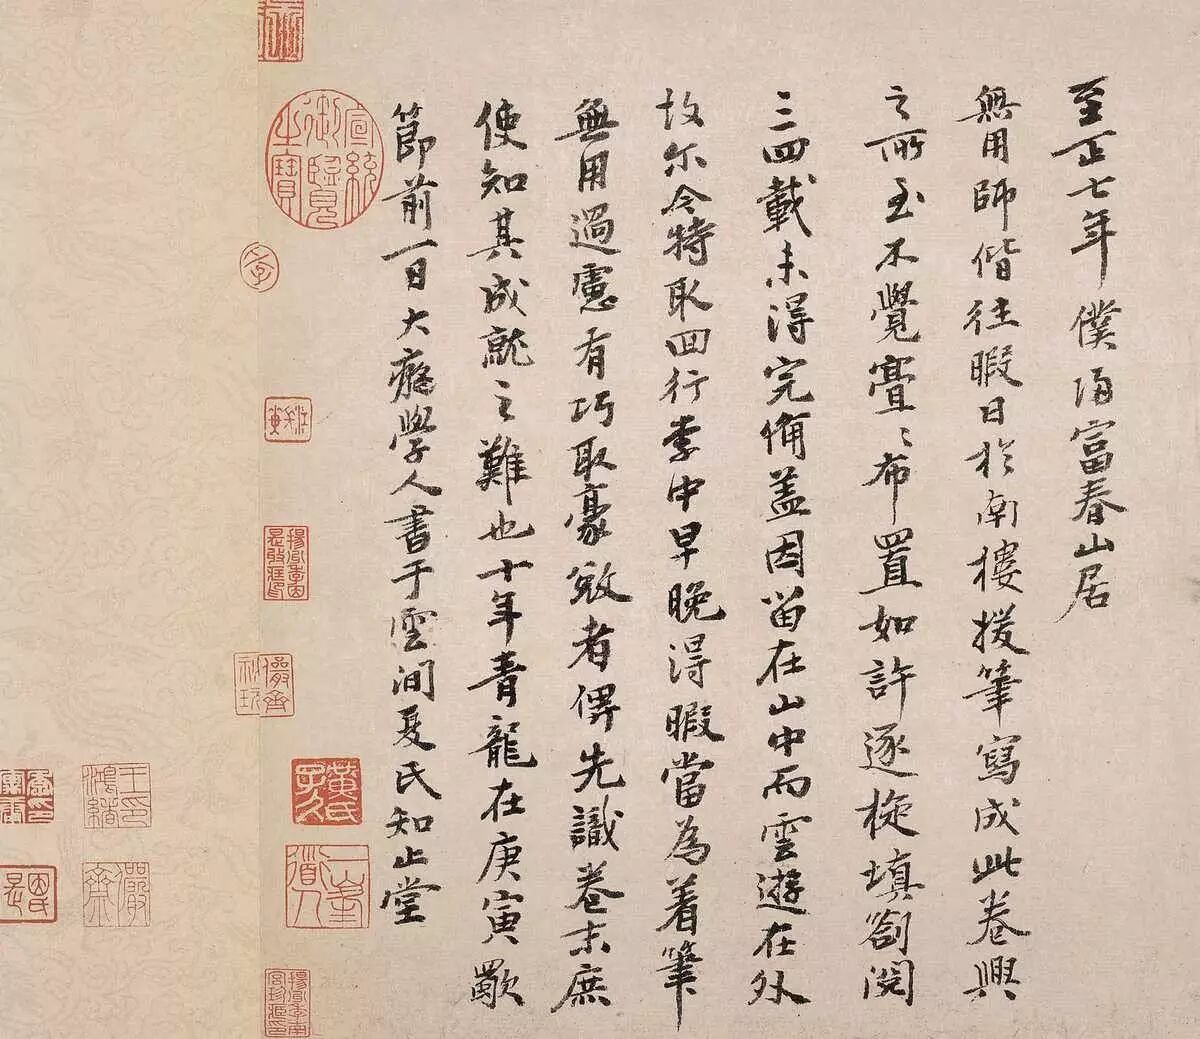 至正七年僕歸富春山居
無用師偕往暇日於南樓援筆寫成此卷興
之所至不覺亹〻布置如許逐旋填劄閱
三四載未得完備盖因留在山中而雲遊在外
故尔今特取回行李中早晚得暇當為着筆
無用過慮有巧取豪敓者俾先識卷末庶
使知其成就之難也十年青龍在庚寅歜
節前一日大癡學人書于雲間夏氏知止堂
宣統御覽之寶
儼齋秘玩
黃氏子久
一峯道人
王鴻緒印
儼齋